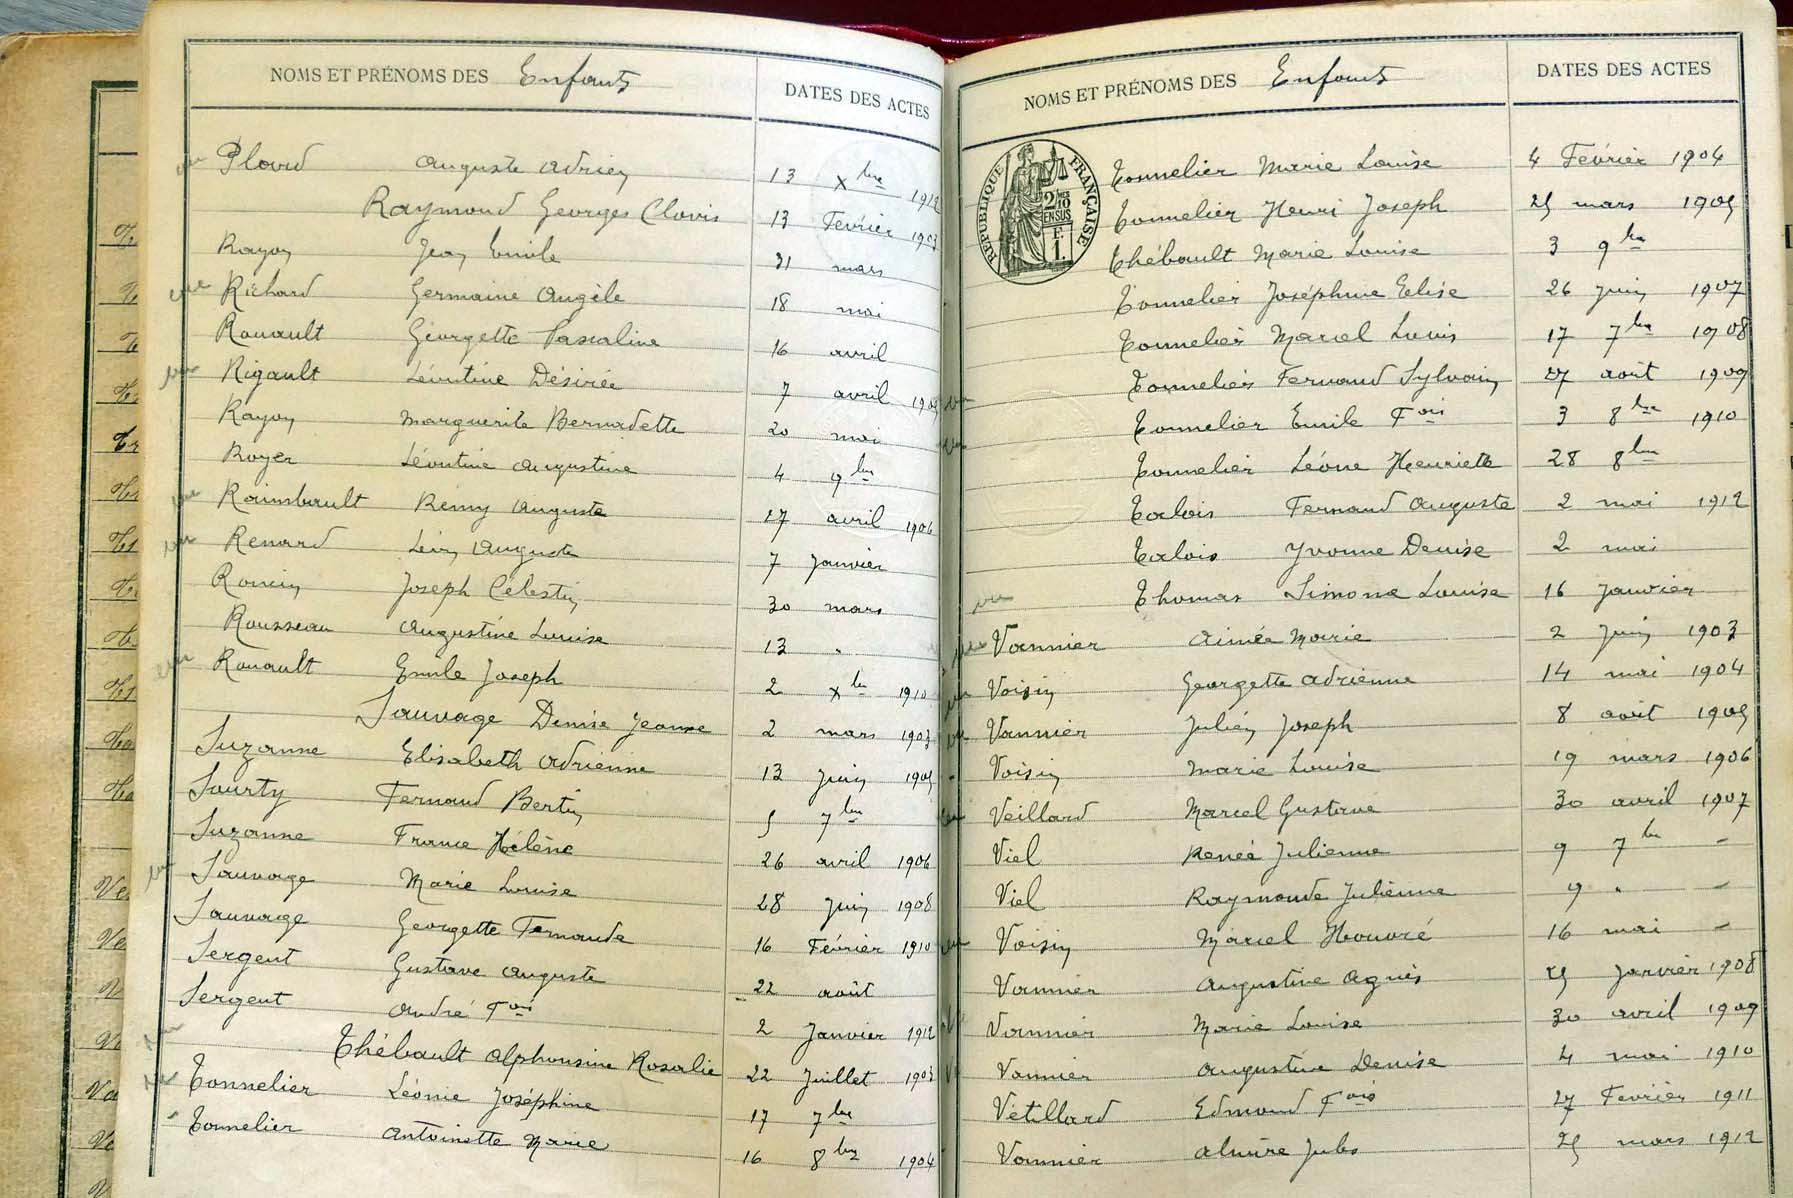 NOMS ET PRÉNOMS DES Enfants DATES DES ACTES
Plard Auguste Adrien 13 Xbre 1912
Raymond Georges Clovis 13 Février 1903
Rayon Jean Emile 31 mars
Richard Germaine Angèle 18 mai
Rouault Georgette Pascaline 16 avril
Rigault Léontine Désirée 7 avril 1905
Rayon Marguerite Bernadette 20 mai
Royer Léontine Augustine 4 9bre
Raimbault Rémy Auguste 27 avril 1906
Renard Léon Auguste 7 Janvier
Roncin Joseph Célestin 30 mars
Rousseau Augustine Louise 13 "
Rouault Emile Joseph 2 Xbre 1910
Sauvage Denise Jeanne 2 mars 1903
Suzanne Elisabeth Adrienne 13 Juin 1905
Sourty Fernand Bertin 5 7bre
Suzanne France Hélène 26 avril 1906
Sauvage Marie Louise 28 Juin 1908
Sauvage Georgette Fernande 16 Février 1910
Sergent Gustave Auguste 22 août
Sergent André Fois 2 Janvier 1912
Thébault Alphonsine Rosalie 22 Juillet 1903
Tonnelier Léonie Joséphine 17 7bre
Tonnelier Antoinette Marie 16 8bre 1904
NOMS ET PRÉNOMS DES Enfants DATES DES ACTES
RÉPUBLIQUE FRANÇAISE
2/10 EN SUS
F.
1.
Tonnelier Marie Louise 4 Février 1904
Tonnelier Henri Joseph 25 mars 1905
Thébault Marie Louise 3 9bre
Tonnelier Joséphine Elise 26 Juin 1907
Tonnelier Marcel Louis 17 7bre 1908
Tonnelier Fernand Sylvain 27 août 1909
Tonnelier Emile Fois 3 8bre 1910
Tonnelier Léone Henriette 28 8bre
Talois Fernand Auguste 2 mai 1912
Talois Yvonne Denise 2 mai
Thomas Simone Louise 16 Janvier
Vannier Aimée Marie 2 Juin 1903
Voisin Georgette Adrienne 14 mai 1904
Vannier Julien Joseph 8 août 1905
Voisin Marie Louise 19 mars 1906
Veillard Marcel Gustave 30 avril 1907
Viel Renée Julienne 9 7bre -
Viel Raymonde Julienne 9 " -
Voisin Marcel Honoré 16 mai -
Vannier Augustine Agnès 25 Janvier 1908
Vannier Marie Louise 30 avril 1909
Vannier Augustine Denise 4 mai 1910
Vétillard Edmond Fois 27 Février 1911
Vannier Jules 25 mars 1912